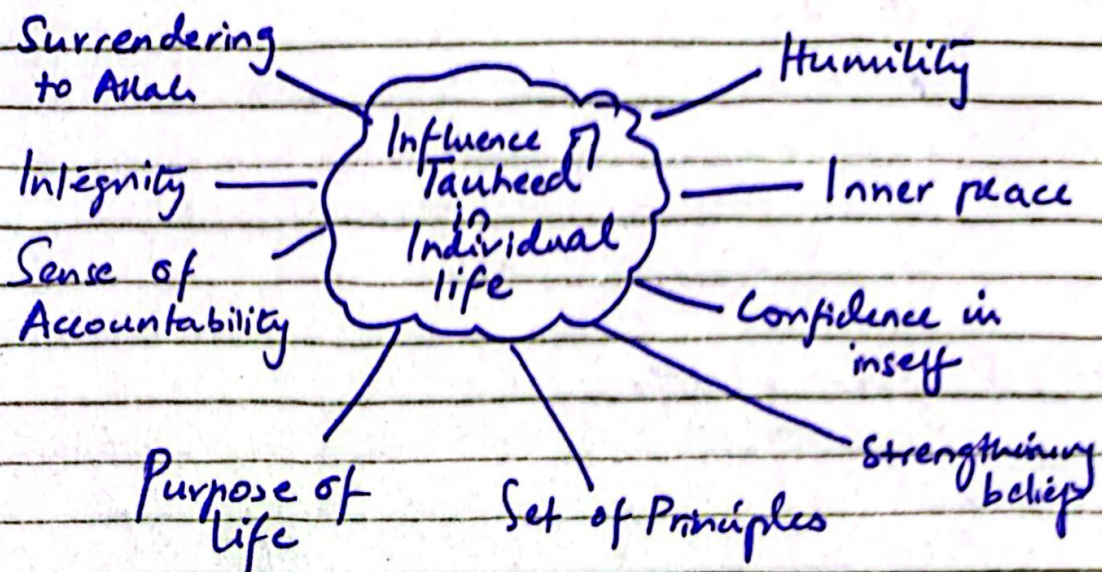 Surrendering
to Allah
Integrity
Sense of
Accountability
Influence of
Tauheed
in
Individual
life
Humility
Inner peace
Confidence in
inself
Strengthening
belief
Purpose of
life
Set of Principles